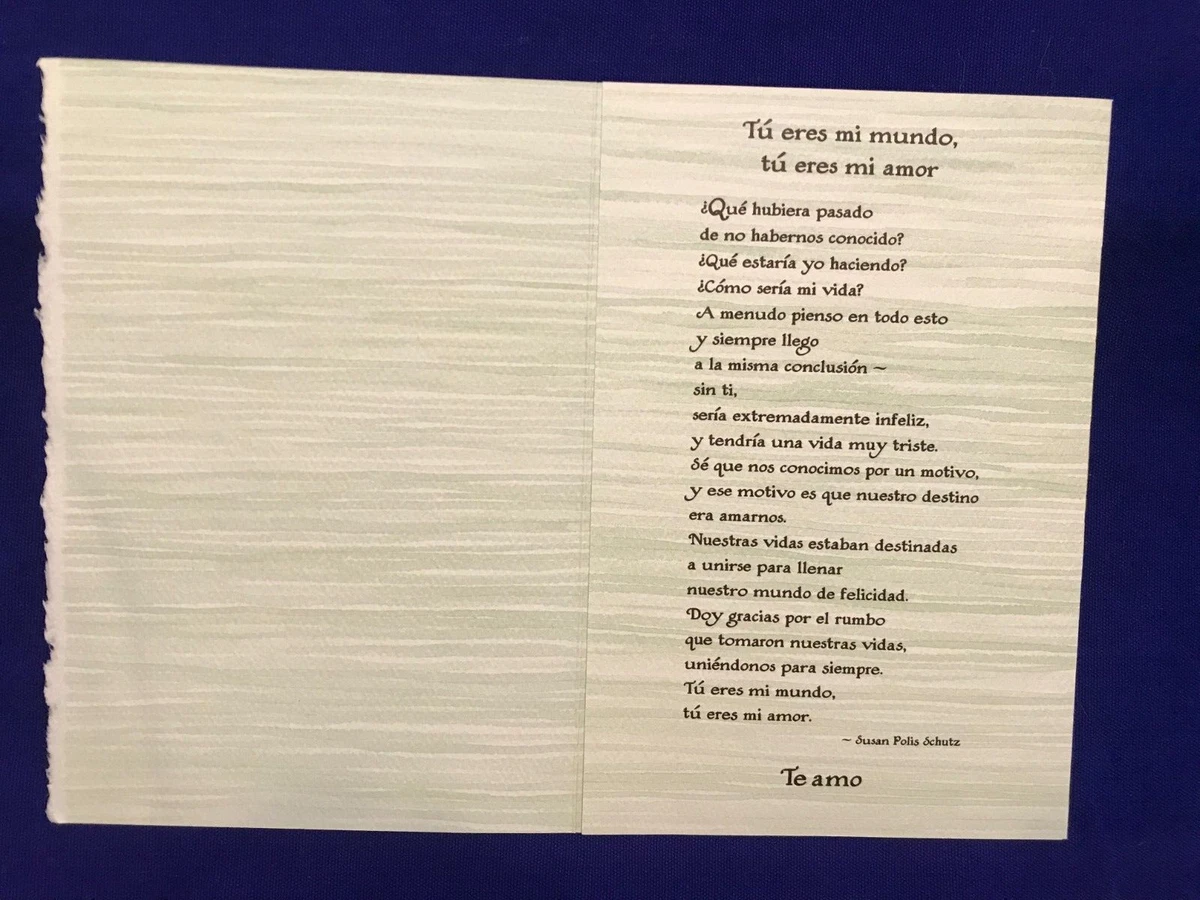 Tú eres mi mundo,
tú eres mi amor
¿Qué hubiera pasado
de no habernos conocido?
¿Qué estaría yo haciendo?
¿Cómo sería mi vida?
A menudo pienso en todo esto
y siempre llego
a la misma conclusión ~
sin ti,
sería extremadamente infeliz,
y tendría una vida muy triste.
Sé que nos conocimos por un motivo,
y ese motivo es que nuestro destino
era amarnos.
Nuestras vidas estaban destinadas
a unirse para llenar
nuestro mundo de felicidad.
Doy gracias por el rumbo
que tomaron nuestras vidas,
uniéndonos para siempre.
Tú eres mi mundo,
tú eres mi amor.
~ Susan Polis Schutz
Te amo